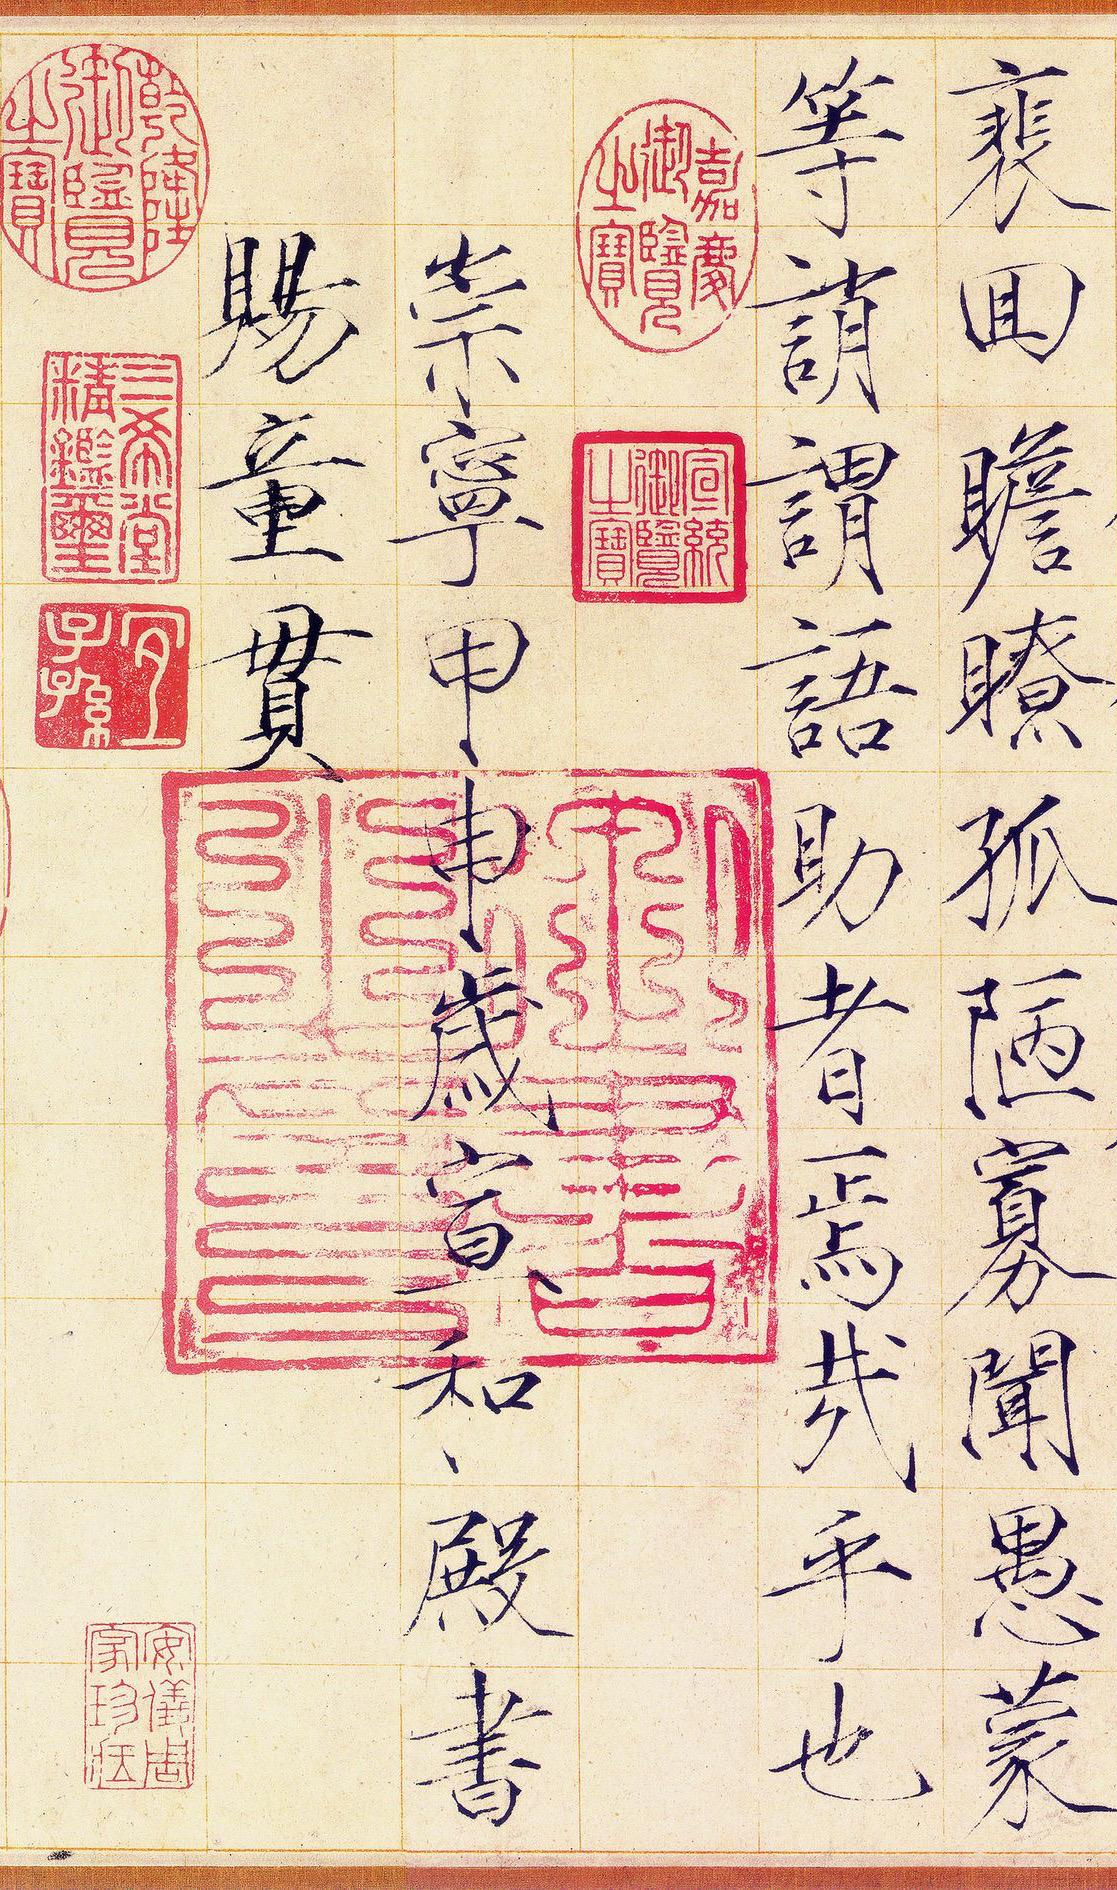 裴回瞻瞭孤陋寡聞愚蒙
等誚謂語助者焉哉乎也
嘉慶御覽之寶
宣統御覽之寶
崇寧甲申歲宣和殿書
賜童貫
乾隆御覽之寶
三希堂精鑑璽
宜子孫
安儀周家珍藏